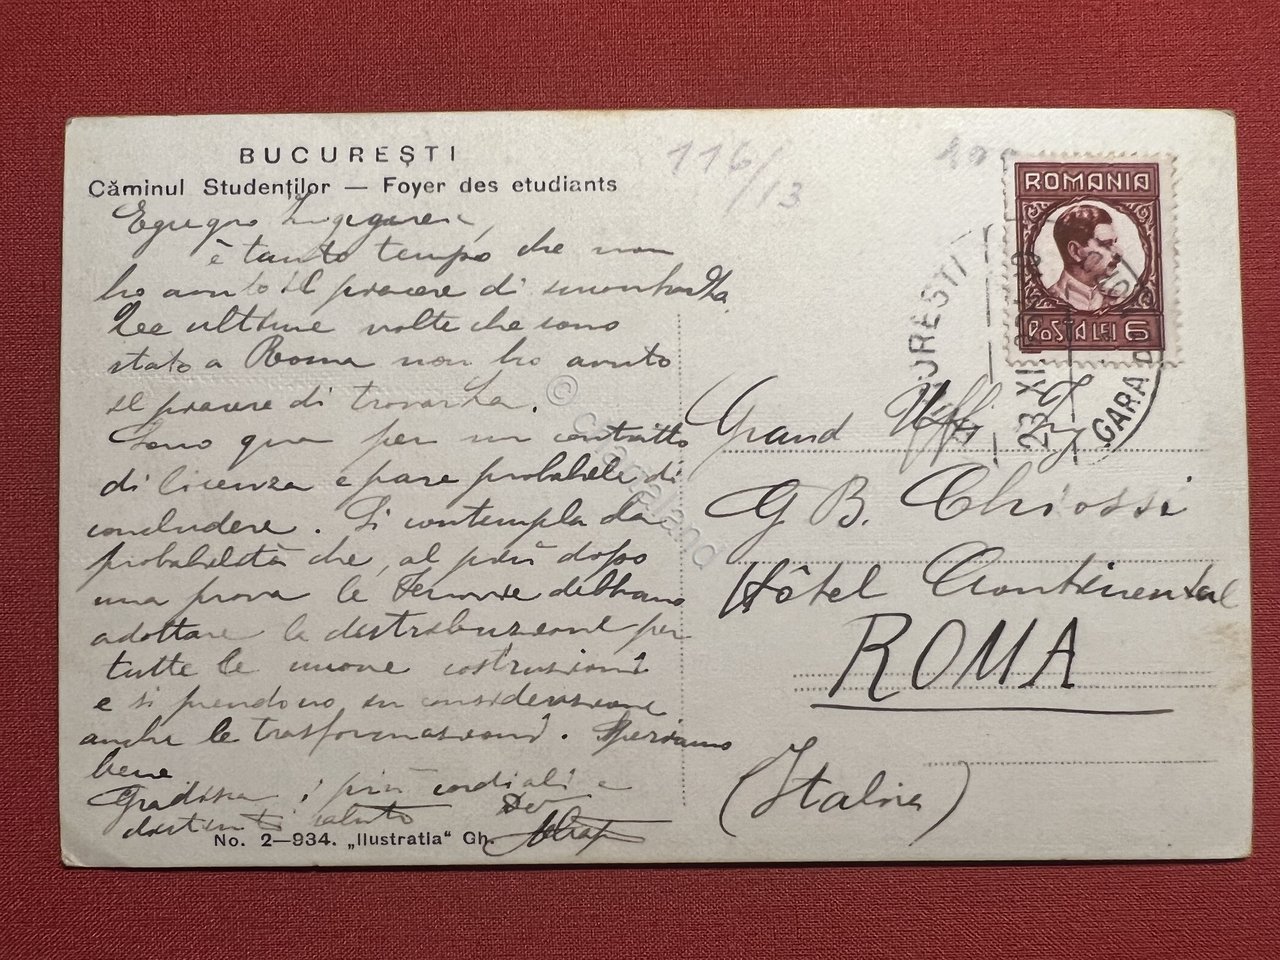 BUCUREȘTI
Căminul Studenților — Foyer des etudiants
116/13
ROMANIA
POSTA LEI 6
23 XII
GARA
Egregio
è tanto tempo che non
ho avuto il piacere di
Lee ultime volte che sono
stato a Roma non ho avuto
il piacere di trovarla.
Sono qua per un contratto
di licenza e pare probabile di
concludere. Si contempla la
probabilità che, al più dopo
una prova le Ferrovie debbano
adottare la distribuzione per
tutte le nuove costruzioni
e si prendono in considerazione
anche le trasformazioni. Speriamo
bene
Gradisca i più cordiali e
distinti saluti
No. 2—934. „Ilustratia“ Gh.
Grand Uff.
G B. Chiossi
Hôtel Continental
ROMA
(Italia)
© cartaland